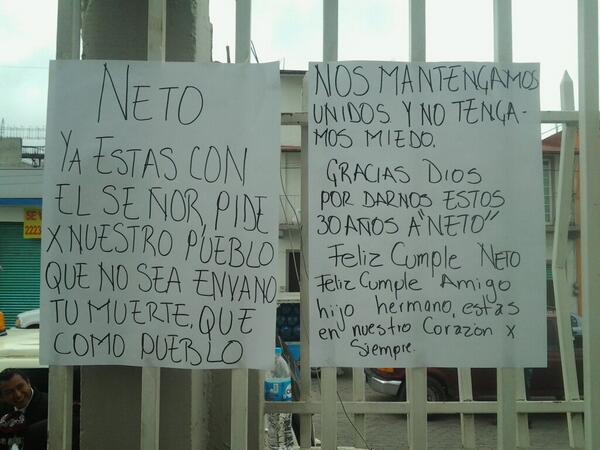 NETO
YA ESTAS CON
EL SEÑOR, PIDE
X NUESTRO PUEBLO
QUE NO SEA ENVANO
TU MUERTE, QUE
COMO PUEBLO
NOS MANTENGAMOS
UNIDOS Y NO TENGA-
MOS MIEDO.
GRACIAS DIOS
POR DARNOS ESTOS
30 AÑOS A "NETO"
Feliz Cumple NETO
Feliz Cumple Amigo
hijo hermano, estas
en nuestro Corazón x
Siempre.
SE
2223